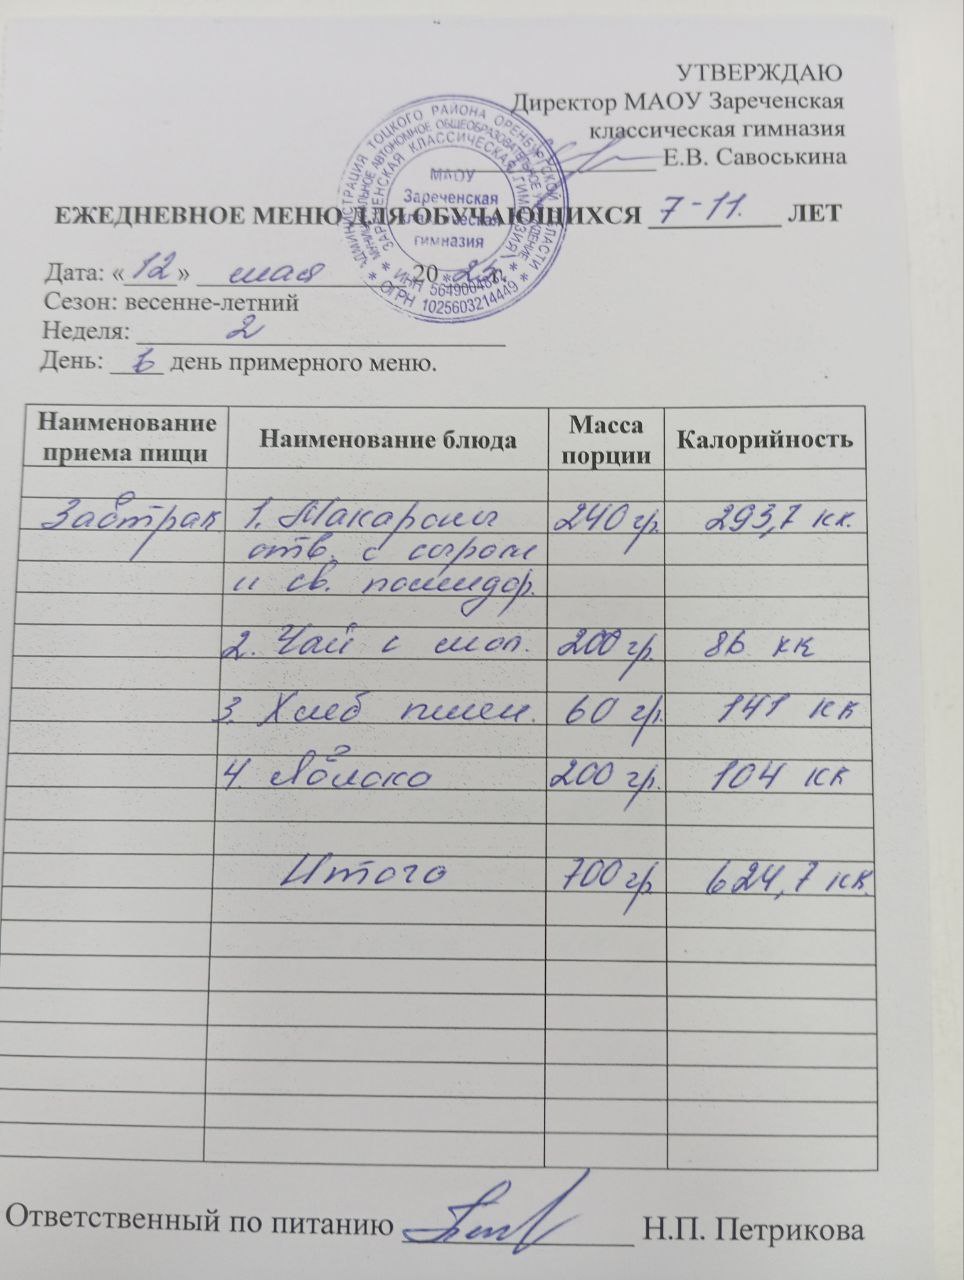 УТВЕРЖДАЮ
Директор МАОУ Зареченская
классическая гимназия
Е.В. Савоськина
АДМИНИСТРАЦИЯ ТОЦКОГО РАЙОНА ОРЕНБУРГСКОЙ ОБЛАСТИ
МУНИЦИПАЛЬНОЕ АВТОНОМНОЕ ОБЩЕОБРАЗОВАТЕЛЬНОЕ УЧРЕЖДЕНИЕ
ЗАРЕЧЕНСКАЯ КЛАССИЧЕСКАЯ ГИМНАЗИЯ
МАОУ
Зареченская
классическая
гимназия
ОГРН 1025603214449
ЕЖЕДНЕВНОЕ МЕНЮ ДЛЯ ОБУЧАЮЩИХСЯ 7-11. ЛЕТ
Дата: «12» мая 20 г.
Сезон: весенне-летний
Неделя: 2
День: день примерного меню.
Наименование приема пищи Наименование блюда Масса порции Калорийность
Завтрак 1. Макароны 240 гр. 293,7 кк.
отв. с сыром
и св. помидор.
2. Чай с мол. 200 гр. 86 кк
3. Хлеб пшен. 60 гр. 141 кк
4. Яблоко 200 гр. 104 кк
Итого 700 гр. 624,7 кк.
Ответственный по питанию Н.П. Петрикова